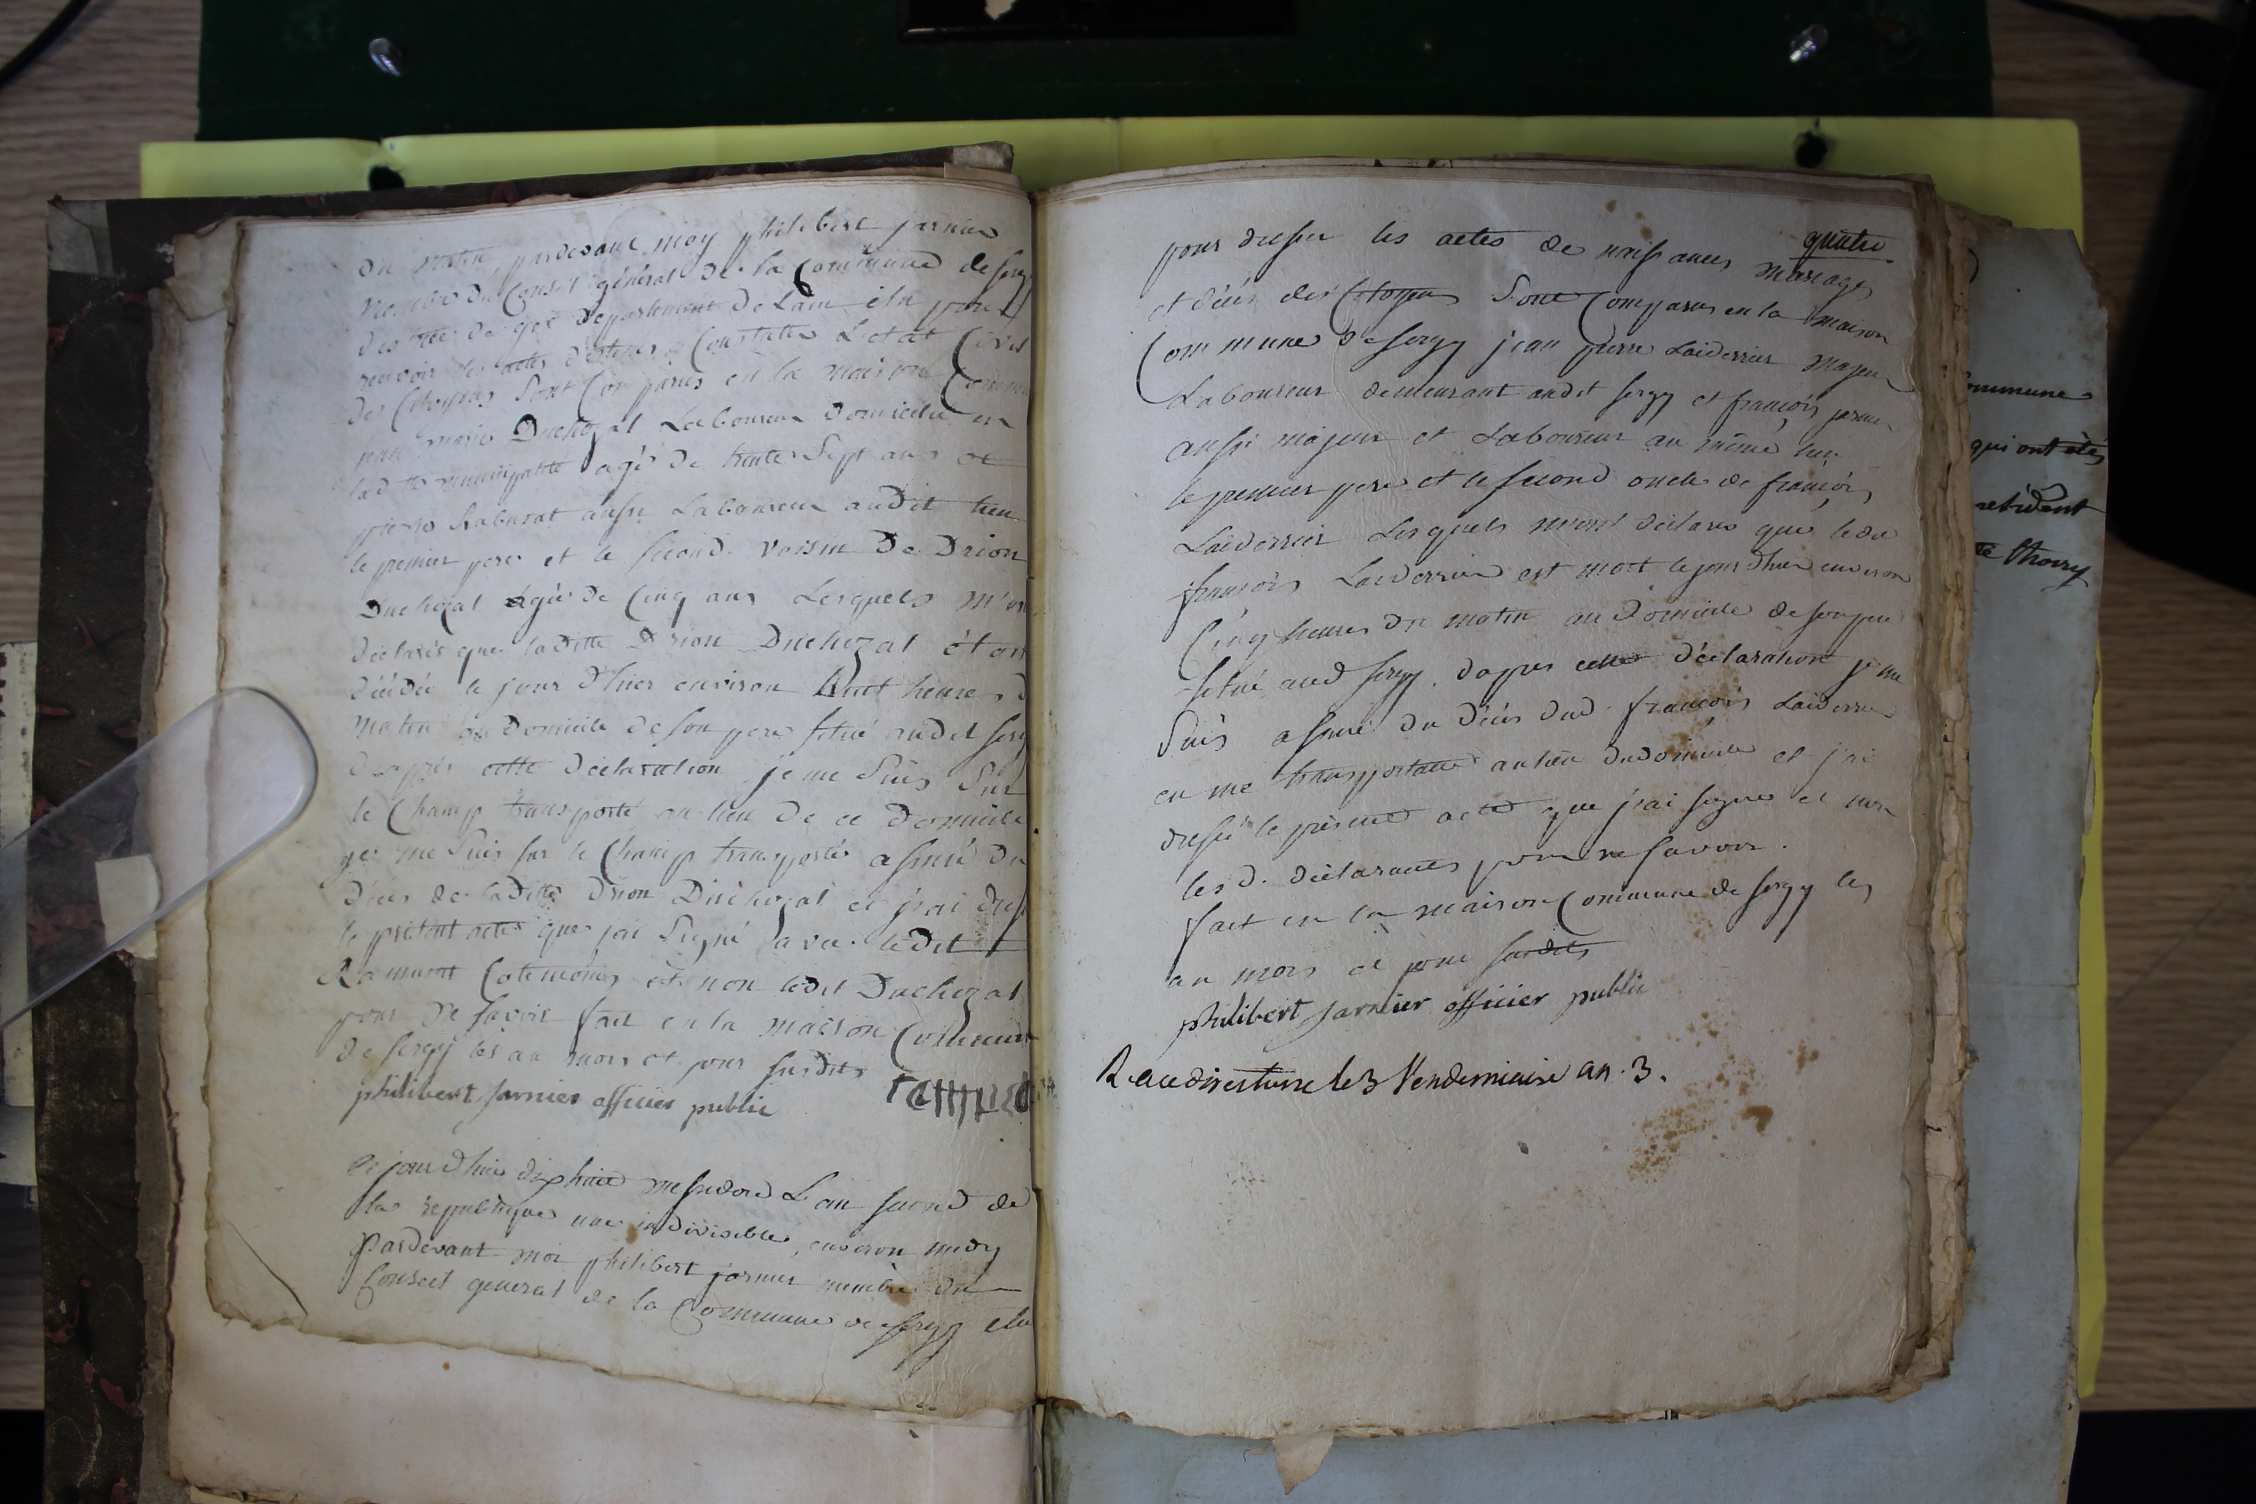 du matin, pardevant moy philibert jarnier
membre du Conseil général de la Commune de sergy
de gex département de Lain élu pour
recevoir les actes destinés a Constater Letat Civil
des Citoyens Sont Comparus en la maison Commune
jean marie Duchozal Laboureur domicilié en
ladtte municipalité agé de trente Sept ans et
aussi Laboureur audit lieu
le premier pere et le second voisin De Drion
Duchozal agée de Cinq ans Lesquels m'on
déclarés que ladtte Drion Duchozal étan
décédée le jour d'hier environ huit heures d
matin au domicile de son pere situé audit serg
d'après cette déclaration je me Suis Sur
le Champ transporté au lieu de ce domicile
je me Suis sur le Champ transportés assuré du
décés de laditte Drion Duchozal et j'ai dress
le présent acte que jai Signé avec ledit
et non ledit Duchozal
pour ne savoir fait en la maison Commune
de sergy les an mois et jour susdits
philibert jarnier officier public
cejourd'hui dixhuit messidord L'an second de
la république une indivisible, environ midy
Pardevant moi philibert jarnier membre du
Conseil general de la Commune de sergy élu
quatre
pour dresser les actes de naissances mariages
et décés des Citoyens Sont Comparus en la maison
Commune de sergy jean pierre Laiderrier majeur
Laboureur demeurant audit sergy et françois jarnier
aussi majeur et Laboureur au même lieu
le premier pere et le second oncle de françois
Laiderrier Lesquels m'ont déclaré que ledit
françois Laiderrier est mort le jour d'hier environ
Cinq heures du matin au Domicile de son pere
situé aud sergy. d'apres cette déclaration je me
Suis assuré du décés dud. françois Laiderrier
en me transportant au lieu du domicile et j'ai
dressé le présent acte que j'ai signé et non
les d. déclarants pour ne savoir.
fait en la maison Commune de sergy les
an mois et jour susdits
philibert jarnier officier public
R. au directoire le 3 Vendemiaire an. 3.
ommune
qui ont été
résident
Thoiry